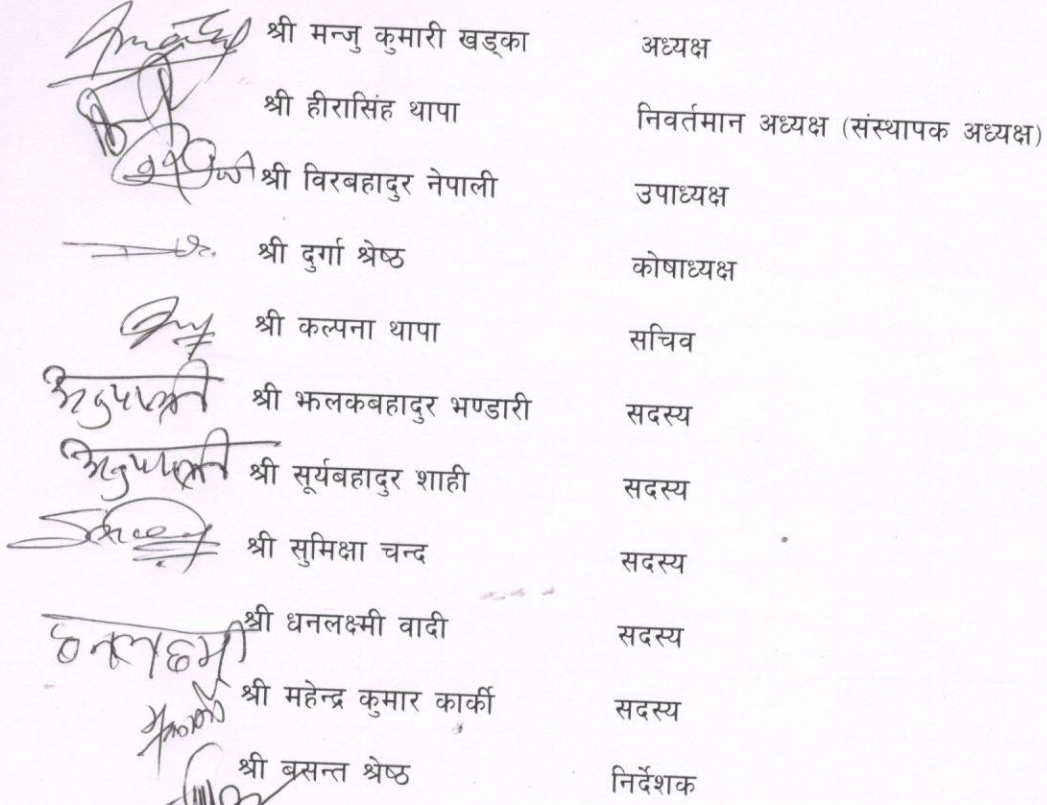 श्री मन्जु कुमारी खड्का अध्यक्ष
श्री हीरासिंह थापा निवर्तमान अध्यक्ष (संस्थापक अध्यक्ष)
श्री विरबहादुर नेपाली उपाध्यक्ष
श्री दुर्गा श्रेष्ठ कोषाध्यक्ष
श्री कल्पना थापा सचिव
श्री झलकबहादुर भण्डारी सदस्य
श्री सूर्यबहादुर शाही सदस्य
श्री सुमिक्षा चन्द सदस्य
श्री धनलक्ष्मी वादी सदस्य
श्री महेन्द्र कुमार कार्की सदस्य
श्री बसन्त श्रेष्ठ निर्देशक